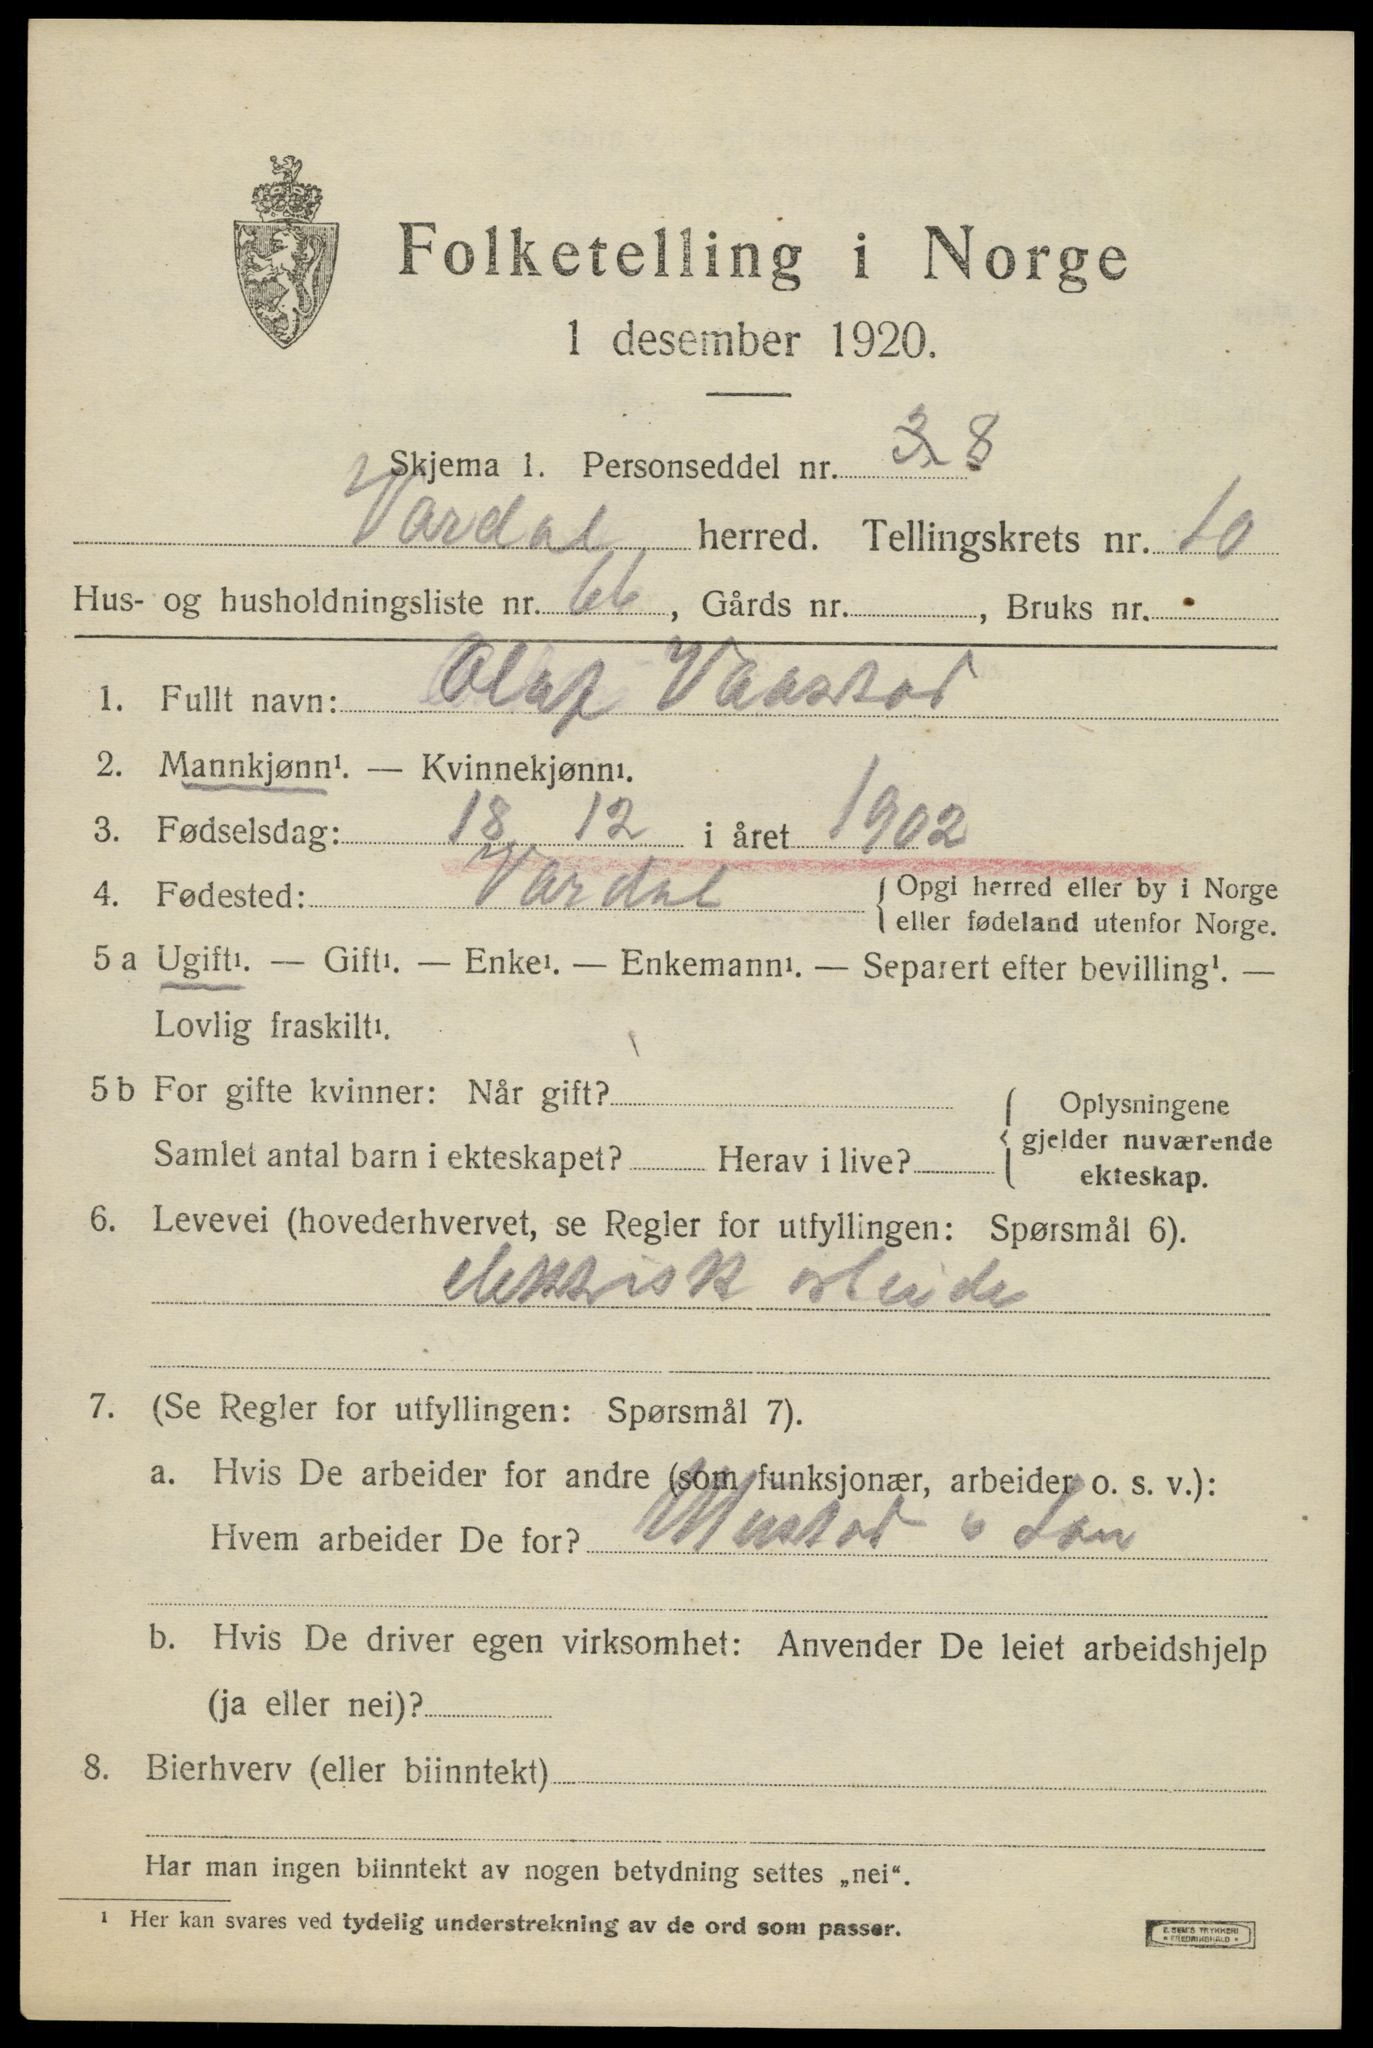 Folketelling i Norge
1 desember 1920.
Skjema 1. Personseddel nr. 3 8
Vardal herred. Tellingskrets nr. 10
Hus- og husholdningsliste nr. 66, Gårds nr. , Bruks nr.
1. Fullt navn: Olaf
2. Mannkjønn¹. — Kvinnekjønn¹.
3. Fødselsdag: 18 12 i året 1902
4. Fødested: Vardal { Opgi herred eller by i Norge
eller fødeland utenfor Norge.
5 a Ugift¹. — Gift¹. — Enke¹. — Enkemann¹. — Separert efter bevilling¹. —
Lovlig fraskilt¹.
5 b For gifte kvinner: Når gift?
Samlet antal barn i ekteskapet? Herav i live?
{ Oplysningene
gjelder nuværende
ekteskap.
6. Levevei (hovederhvervet, se Regler for utfyllingen: Spørsmål 6).
elektrisk arbeide
7. (Se Regler for utfyllingen: Spørsmål 7).
a. Hvis De arbeider for andre (som funksjonær, arbeider o. s. v.):
Hvem arbeider De for? Mustad & Søn
b. Hvis De driver egen virksomhet: Anvender De leiet arbeidshjelp
(ja eller nei)?
8. Bierhverv (eller biinntekt)
Har man ingen biinntekt av nogen betydning settes „nei“.
¹ Her kan svares ved tydelig understrekning av de ord som passer.
E. SEM'S TRYKKERI
• FREDRIKSHALD •